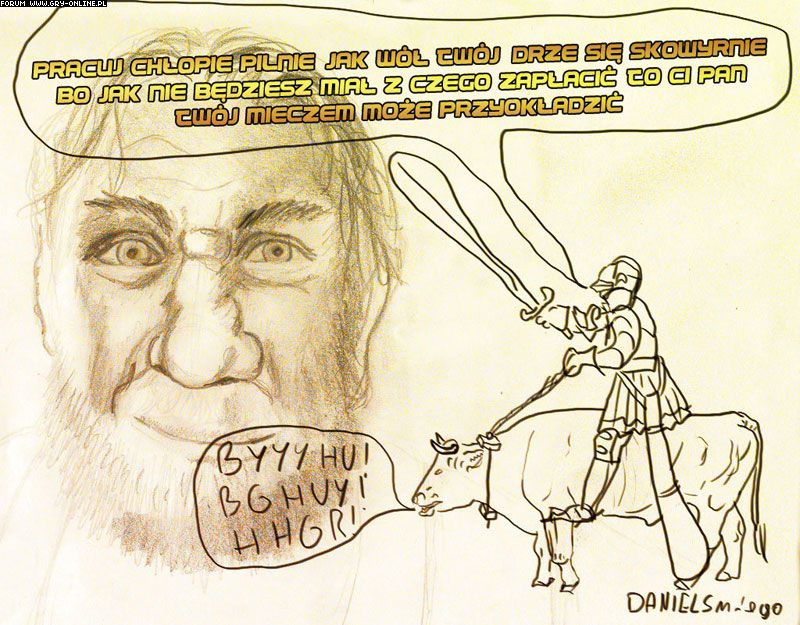 FORUM WWW.GRY-ONLINE.PL
PRACUJ CHŁOPIE PILNIE JAK WÓŁ TWÓJ DRZE SIĘ SKOWYRNIE
BO JAK NIE BĘDZIESZ MIAŁ Z CZEGO ZAPŁACIĆ TO CI PAN
TWÓJ MIECZEM MOŻE PRZYOKŁADZIĆ
BYYYHU!
BGHUY!
HHGR!
DANIELSmiego